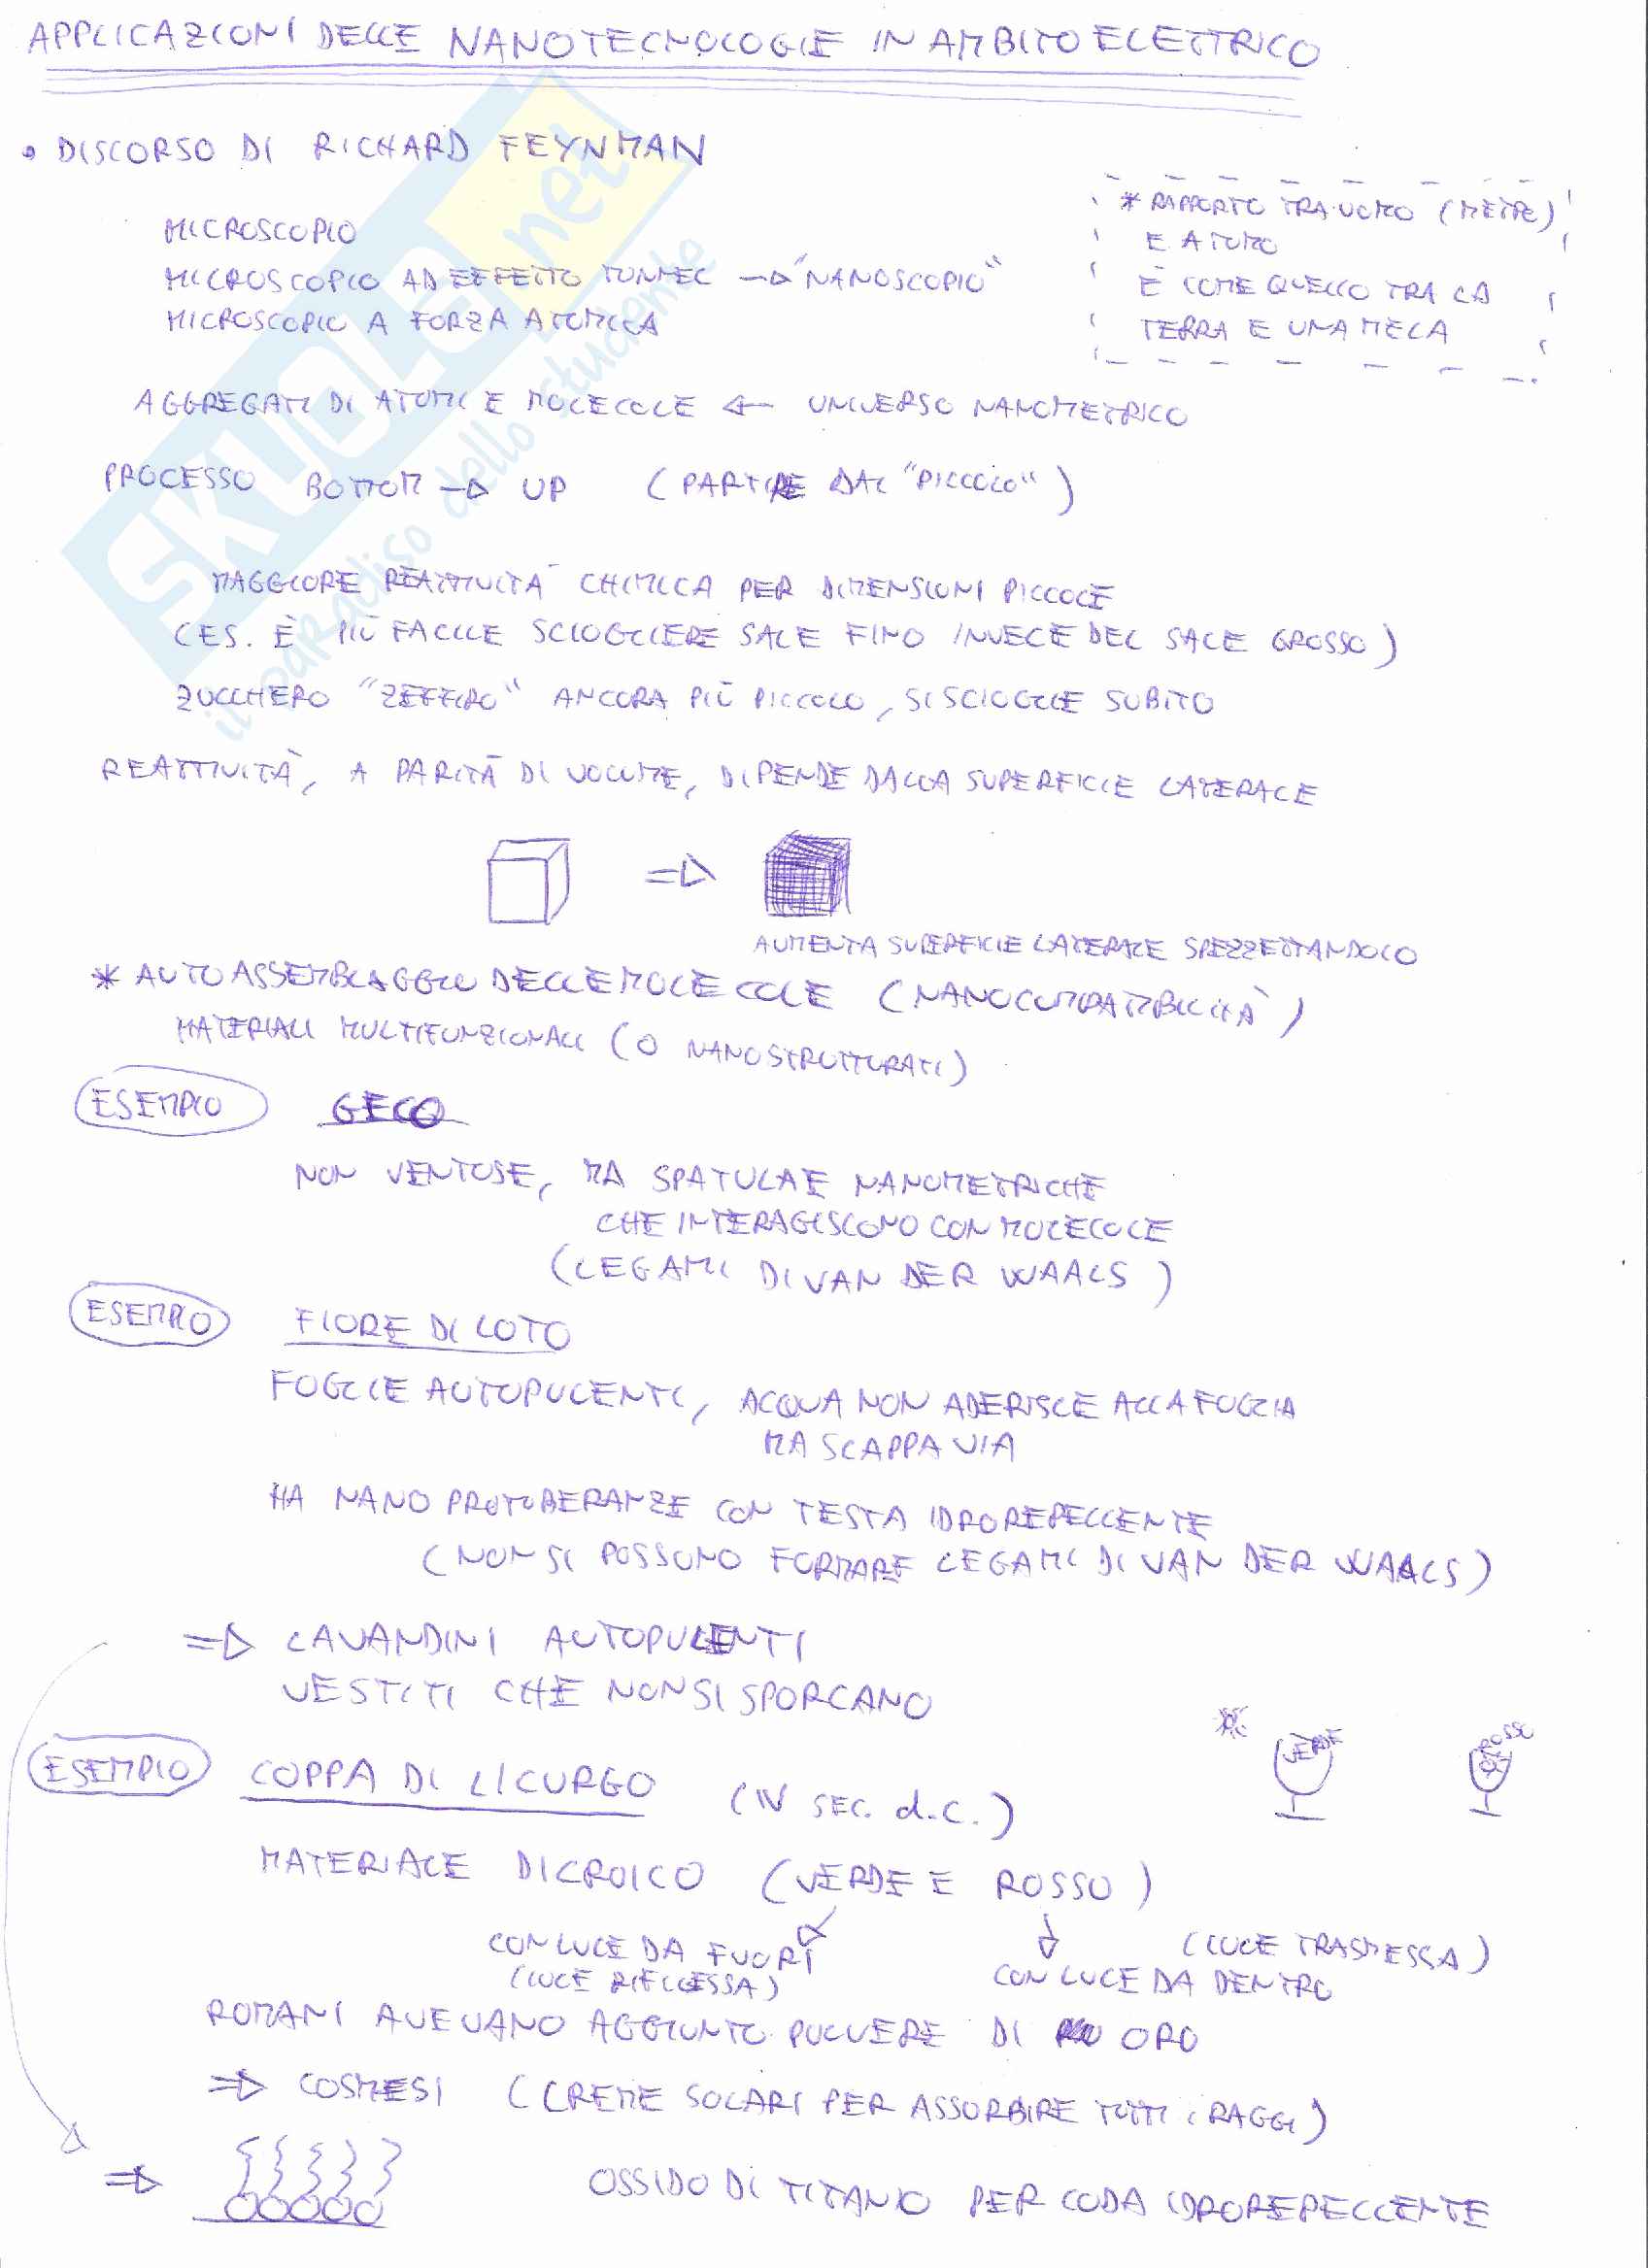 APPLICAZIONI DELLE NANOTECNOLOGIE IN AMBITO ELETTRICO
• DISCORSO DI RICHARD FEYNMAN
MICROSCOPIO
MICROSCOPIO AD EFFETTO TUNNEL → "NANOSCOPIO"
MICROSCOPIO A FORZA ATOMICA
* RAPPORTO TRA UOMO (METRO)
E ATOMO
È COME QUELLO TRA LA
TERRA E UNA MELA
AGGREGATI DI ATOMI E MOLECOLE ← UNIVERSO NANOMETRICO
PROCESSO BOTTOM → UP (PARTIRE DAL "PICCOLO")
MAGGIORE REATTIVITÀ CHIMICA PER DIMENSIONI PICCOLE
(ES. È PIÙ FACILE SCIOGLIERE SALE FINO INVECE DEL SALE GROSSO)
ZUCCHERO "ZEFFIRO" ANCORA PIÙ PICCOLO, SI SCIOGLIE SUBITO
REATTIVITÀ, A PARITÀ DI VOLUME, DIPENDE DALLA SUPERFICIE LATERALE
⇒
AUMENTA SUPERFICIE LATERALE SPEZZETTANDOLO
* AUTOASSEMBLAGGIO DELLE MOLECOLE (NANOCOMPATIBILITÀ)
MATERIALI MULTIFUNZIONALI (O NANOSTRUTTURATI)
ESEMPIO GECO
NON VENTOSE, MA SPATULAE NANOMETRICHE
CHE INTERAGISCONO CON MOLECOLE
(LEGAMI DI VAN DER WAALS)
ESEMPIO FIORE DI LOTO
FOGLIE AUTOPULENTI, ACQUA NON ADERISCE ALLA FOGLIA
MA SCAPPA VIA
HA NANO PROTUBERANZE CON TESTA IDROREPELLENTE
(NON SI POSSONO FORMARE LEGAMI DI VAN DER WAALS)
⇒ LAVANDINI AUTOPULENTI
VESTITI CHE NON SI SPORCANO
VERDE ROSSO
ESEMPIO COPPA DI LICURGO (IV SEC. d.C.)
MATERIALE DICROICO (VERDE E ROSSO)
CON LUCE DA FUORI
(LUCE RIFLESSA)
(LUCE TRASMESSA)
CON LUCE DA DENTRO
ROMANI AVEVANO AGGIUNTO POLVERE DI ORO
⇒ COSMESI (CREME SOLARI PER ASSORBIRE TUTTI I RAGGI)
⇒ OSSIDO DI TITANIO PER CODA IDROREPELLENTE
SKUOLA.net
il paradiso dello studente